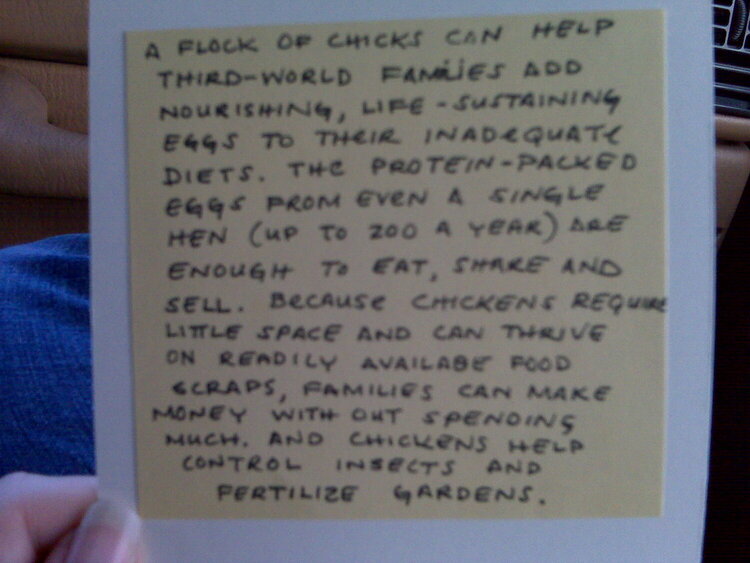 A FLOCK OF CHICKS CAN HELP
THIRD-WORLD FAMILIES ADD
NOURISHING, LIFE-SUSTAINING
EGGS TO THEIR INADEQUATE
DIETS. THE PROTEIN-PACKED
EGGS FROM EVEN A SINGLE
HEN (UP TO 200 A YEAR) ARE
ENOUGH TO EAT, SHARE AND
SELL. BECAUSE CHICKENS REQUIRE
LITTLE SPACE AND CAN THRIVE
ON READILY AVAILABE FOOD
SCRAPS, FAMILIES CAN MAKE
MONEY WITH OUT SPENDING
MUCH. AND CHICKENS HELP
CONTROL INSECTS AND
FERTILIZE GARDENS.